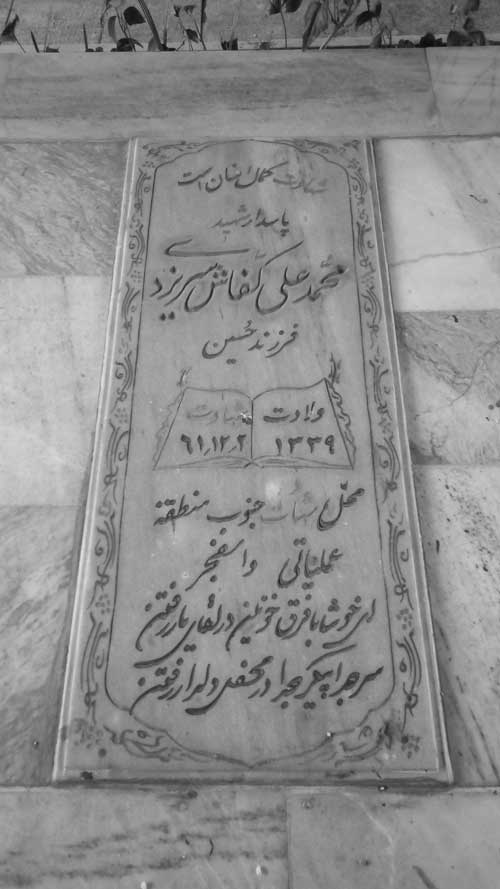 شهادت کمال انسان است
پاسدار شهید
محمد علی کفاش سریزدی
فرزند حسین
ولادت شهادت
۱۳۳۹ ۶۱٫۱۲٫۲
محل شهادت جنوب منطقه
عملیاتی والفجر
ای خوشا با فرق خونین در لقای یار رفتن
سر جدا پیکر جدا در محفل دلدار رفتن